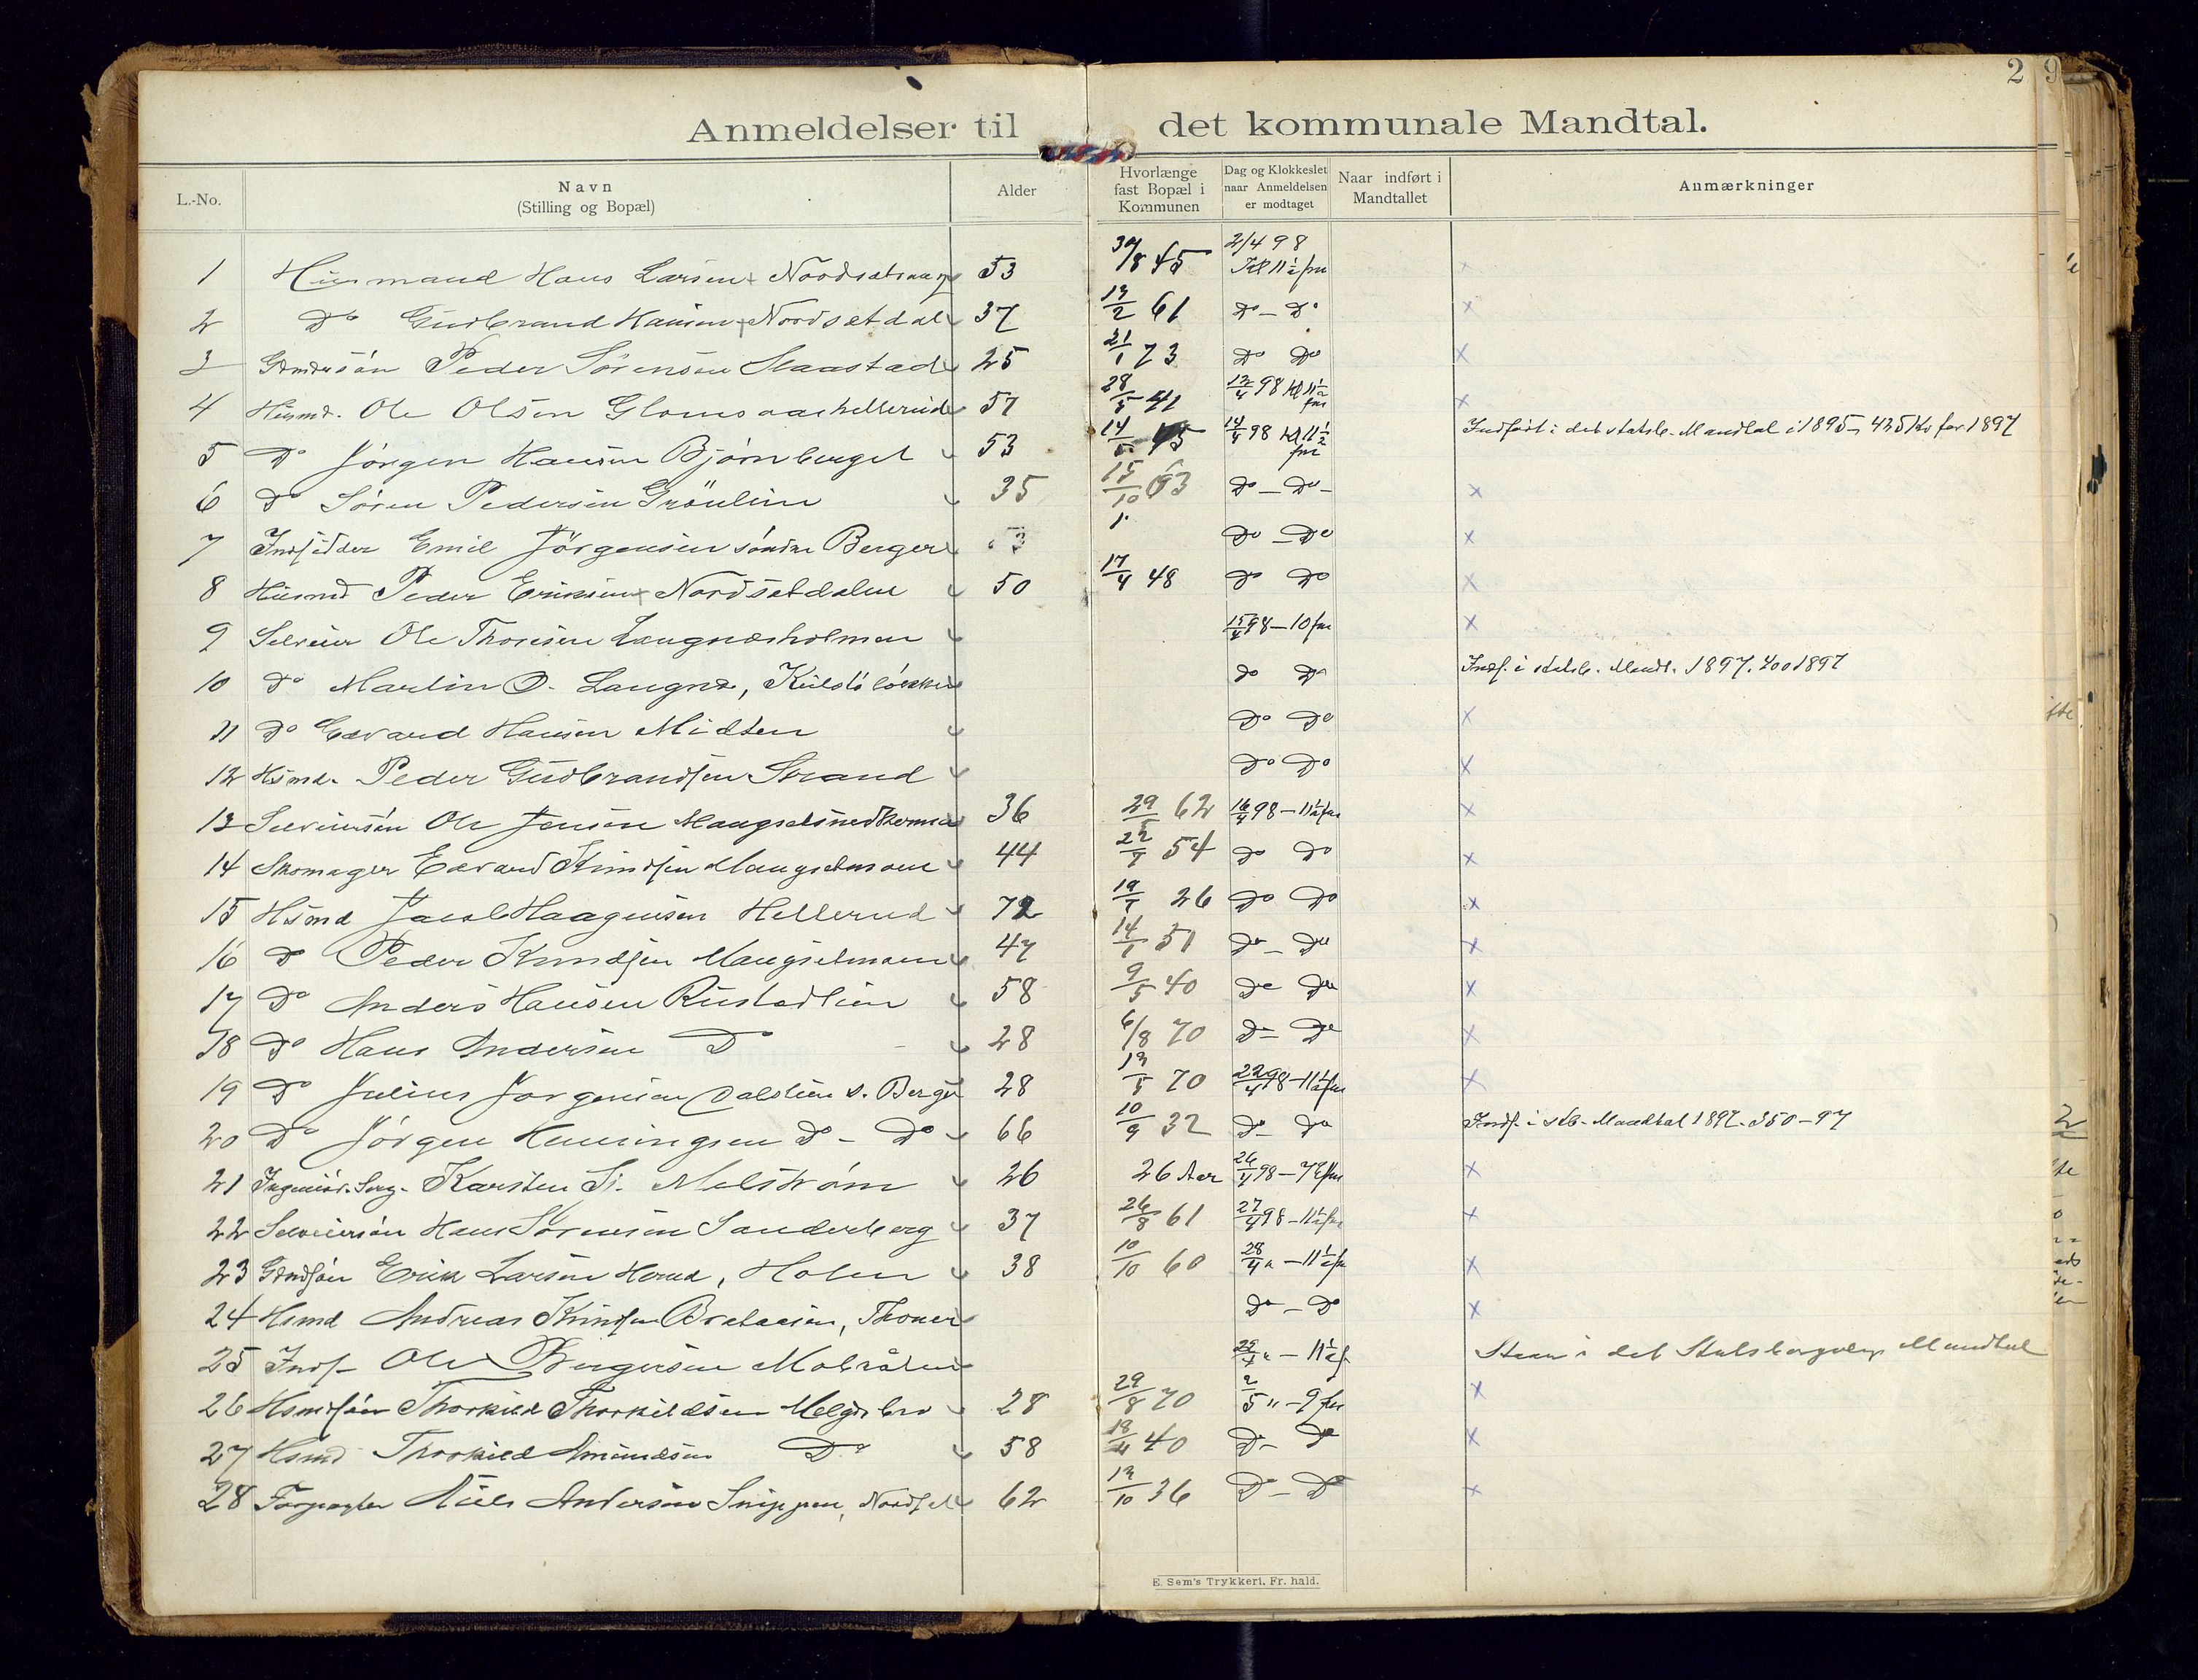 2 9
Anmeldelser til det kommunale Mandtal.
L.-No. Navn (Stilling og Bopæl) Alder Hvorlænge fast Bopæl i Kommunen Dag og Klokkeslet naar Anmeldelsen er modtaget Naar indført i Mandtallet Anmærkninger
1 Husmand Hans Larsen 53 30/8 45 2/4 98 Kl 11½ fm
2 Do Gudbrand Hansen Nordsetdal 37 13/2 61 Do - Do x
3 Peder Sörensen Slaastad 25 21/1 73 Do Do x
4 Husmd. Ole Olsen Glomsaahellerud 57 28/5 41 13/4 98 Kl 11½ fm x
5 Do Jörgen Hansen Bjørnberget 53 14/5 45 14/4 98 Kl 11½ fm Indført i det statsb. Mandtal i 1895 - 425 for 1897
6 Do Sören Pedersen Grönlien 35 15/10 63 Do - Do - x
7 Indsidder Emil Jörgensen söndre Berger Do - Do x
8 Husmd Peder Eriksen Nordsetdalen 50 17/4 48 Do Do x
9 Selveier Ole Thoresen Langnæsholmen 15/4 98 - 10 fm x
10 Do Martin O. Langnæs, Do Do Indf. i statsb. Mandt. 1897. 400 1897
11 Do Edvard Hansen Midten Do Do x
12 Hsmd. Peder Gudbrandsen Strand Do Do x
13 Selveiersön Ole Jensen 36 29/5 62 16/4 98 - 11½ fm x
14 Skomager Edvard Knudsen Maugsetmoen 44 54 Do Do x
15 Hsmd Jacob Haagensen Hellerud 72 26 Do Do x
16 Do Peder Knudsen Maugsetmoen 47 14/1 51 Do - Do x
17 Do Anders Hansen Rustadlien 58 9/5 40 Do Do x
18 Do Hans Andersen Do 28 6/8 70 Do - Do x
19 Do Julius Jørgensen Dalslien s. Berger 28 13/5 70 22/4 98 - 11½ fm x
20 Do Jörgen Henningsen Do - Do 66 10/9 32 Do - Do Indf. i stb. Mandtal 1897. 350 - 97
21 Karsten S. Melström 26 26 Aar 26/4 98 - 7½ fm x
22 Selveiersön Hans Sörensen Sanderberg 37 26/8 61 27/4 98 - 11½ fm x
23 Erik Larsen Herud, Holen 38 10/10 60 28/4 " - 11½ fm x
24 Hsmd Andreas Knudsen Brataasen, Thoner Do - Do x
25 Inds. Ole Bergersen - 11½ f Staar i det Statsborgerlige Mandtal
26 Hsmdsön Thorkild Thorkildsen 28 29/8 70 2/5 " - 9 fm x
27 Hsmd Thorkild Amundsen Do 58 40 Do - Do x
28 Forpagter Niels Andersen Snippen, Nordset 62 13/10 36 Do - Do x
E. Sem's Trykkeri. Fr.hald.